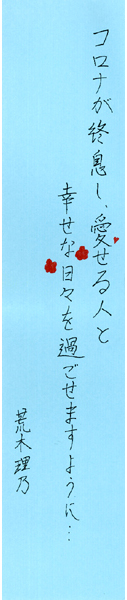 コロナが終息し、愛せる人と
幸せな日々を過ごせますように…
荒木理乃